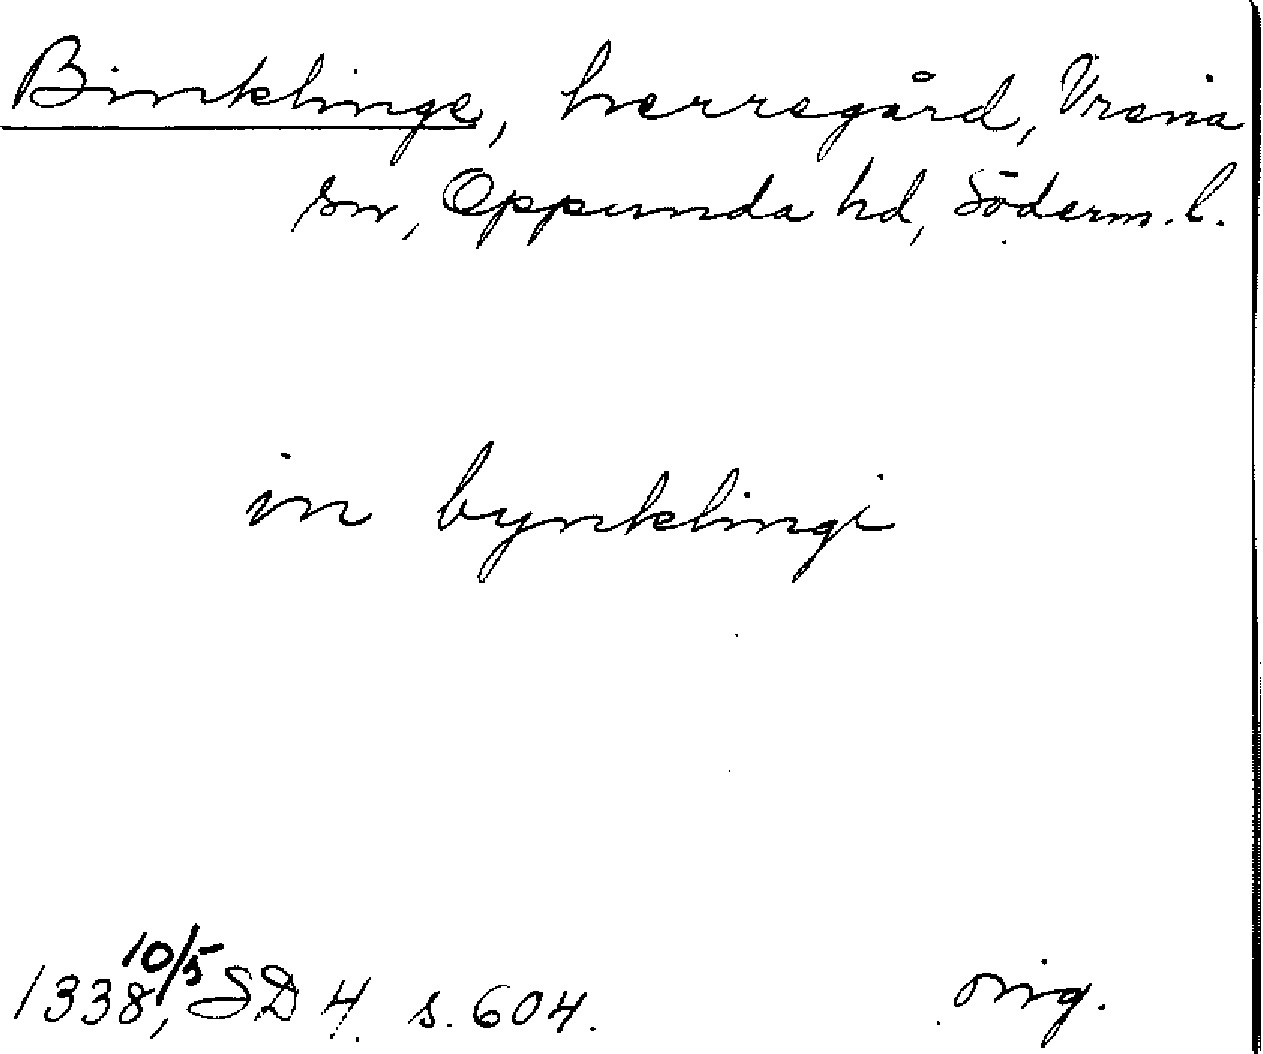 Binklinge, herregård, Vrena
sn, Oppunda hd, Söderm. l.
in bynklingi
1338 10/5, SD 4 s. 604.
orig.